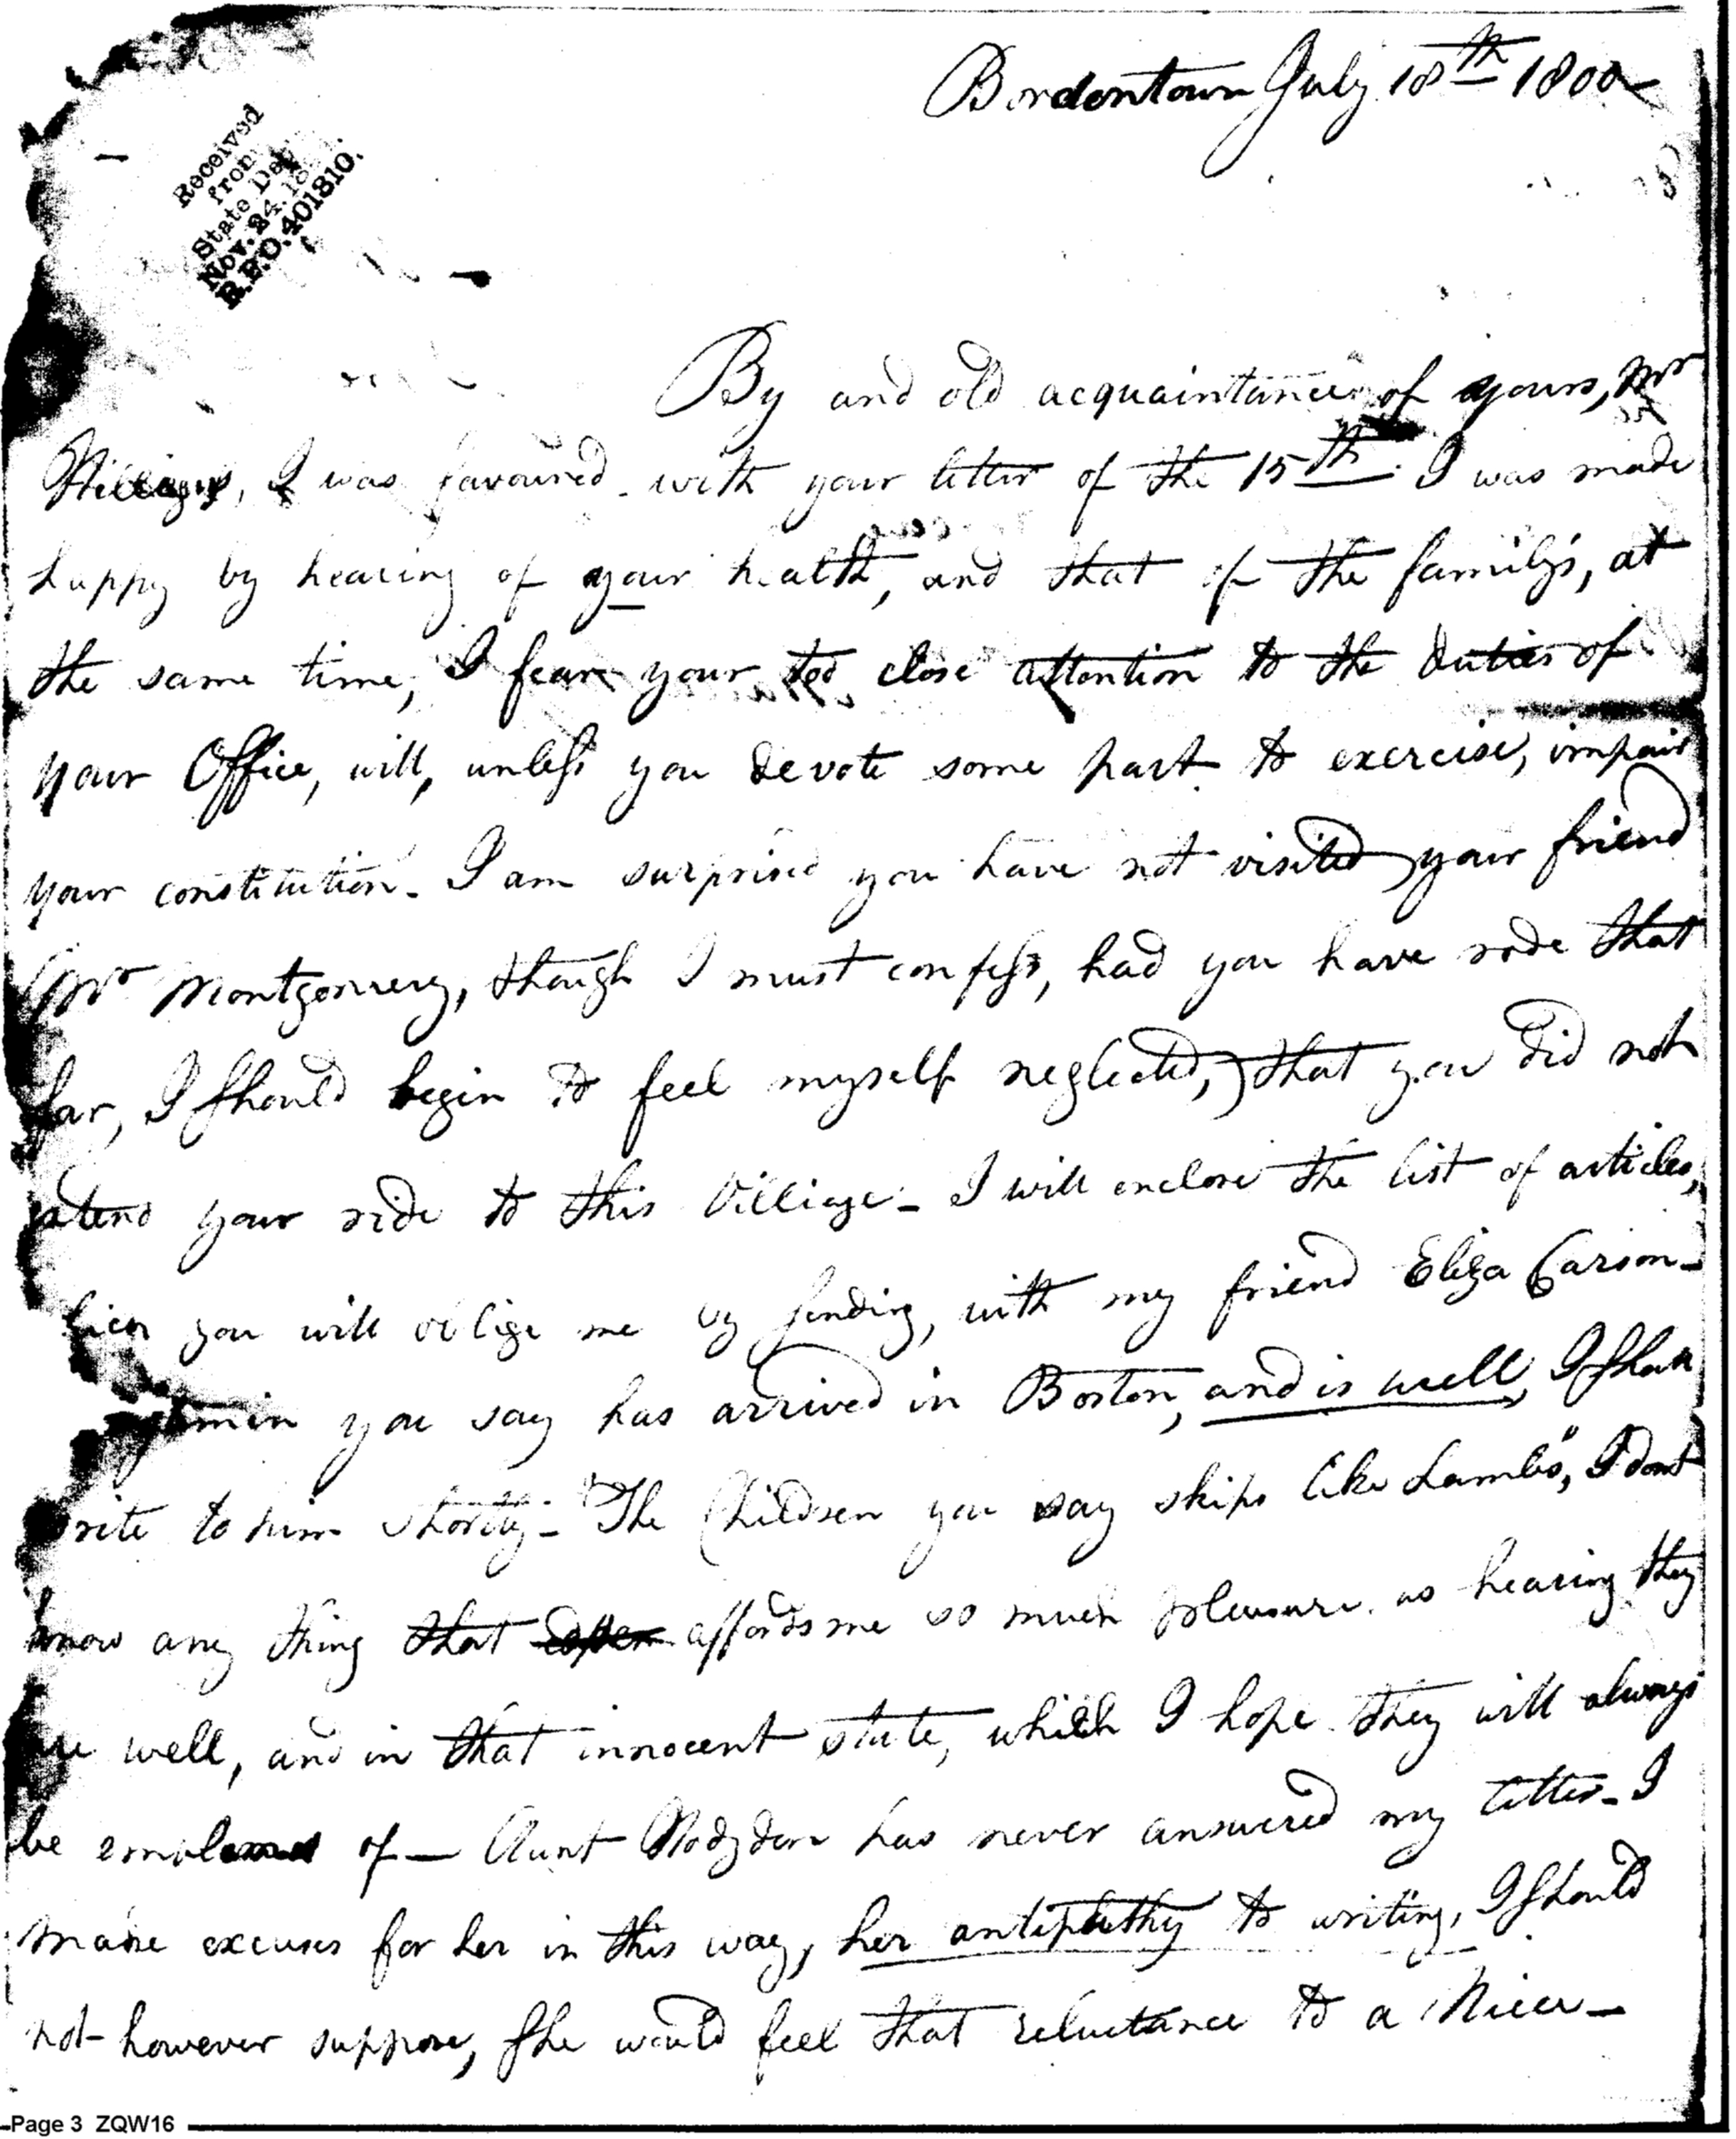 Bordentown July 18th 1800
Received
from
State Dep
Nov. 24. 18
R.P.O. 401310.
By and old acquaintance of yours, Mr
I was favoured with your letter of the 15th. I was made
happy by hearing of your health, and that of the family's, at
the same time, I fear your too close attention to the duties of
your Office, will, unless you devote some part to exercise, impair
your constitution - I am surprised you have not visited your friend
Mr Montgomery, though I must confess, had you have rode that
far, I should begin to feel myself neglected, that you did not
xtend your ride to this Village - I will enclose the list of articles,
hich you will oblige me by sending, with my friend Eliza Carson -
jamin you say has arrived in Boston, and is well, I shall
rite to him shortly - "The Children you say skips like Lambs", I dont
know any thing that affords me so much pleasure as hearing they
are well, and in that innocent state, which I hope they will always
be of - Aunt Hodgdon has never answered my letter - I
make excuses for her in this way, her antipathy to writing, I should
not however suppose, she would feel that reluctance to a Niece -
Page 3 ZQW16